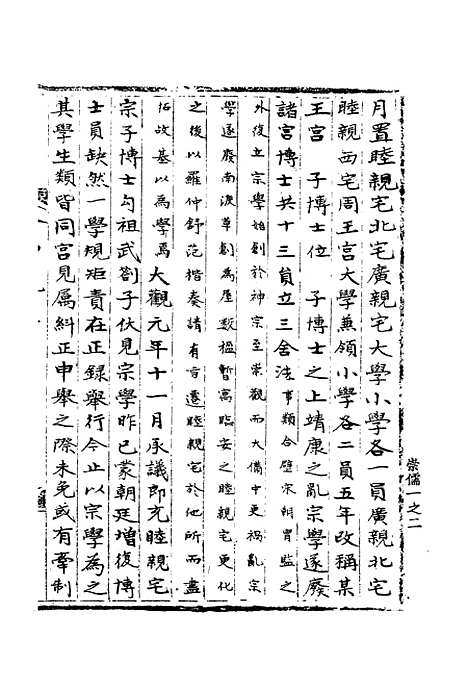 月置睦親宅北宅廣親宅大學小學各一員廣親北宅
睦親西宅周王宮大學兼領小學各二員五年改稱某
王宮 子博士位 子博士之上靖康之亂宗學遂廢
諸宮博士共十三員立三舍法事類合璧宋朝冑監之
外復立宗學始創於神宗至崇觀而大備中更禍亂宗
學遂廢南渡草創為屋數楹暫寓臨安之睦親宅更化
之後以羅仲舒范楷奏請有旨遷睦親宅於他所而盡
拓故基以為學焉大觀元年十一月承議郎充睦親宅
宗子博士勾祖武劄子伏見宗學昨已蒙朝廷增復博
士員缺然一學規矩責在正錄舉行今止以宗學為之
其學生類皆同宮見屬糾正申舉之際未免或有牽制
崇儒一之二